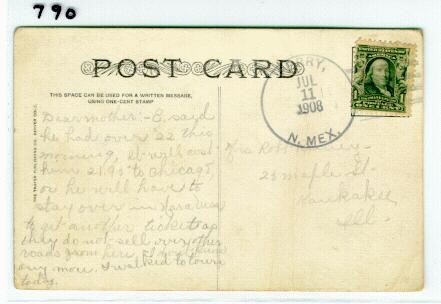 790
POST CARD
THIS SPACE CAN BE USED FOR A WRITTEN MESSAGE,
USING ONE-CENT STAMP
THE THAYER PUBLISHING CO. DENVER COLO.
JUL
11
1908
N. MEX.
Dear mother:- E. said
he had over 22 this
morning, it will cost
him 21.95 to Chicago,
or he will have to
stay over in
to get another ticket as
they do not sell over other
roads from here.
any more. I walked to town
today.
Mrs Rob
25 Maple St.
Kankakee
Ill.